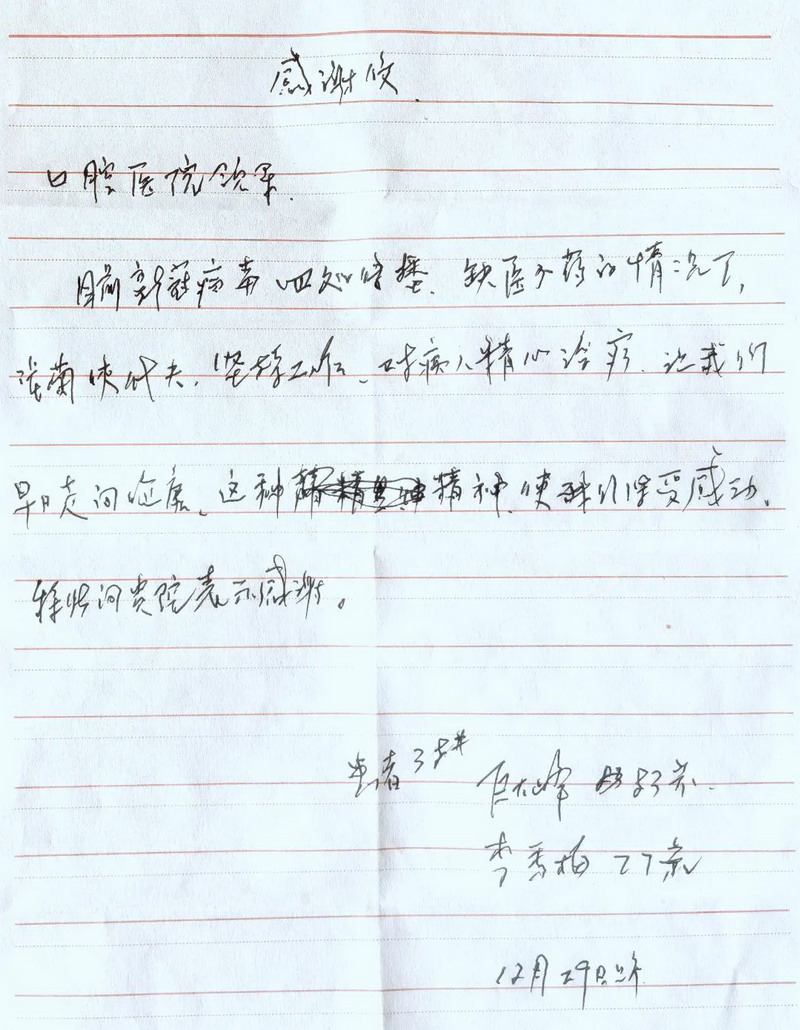 感谢信
口腔医院领导.
目前新冠病毒四处传播、缺医少药的情况下,
张菊侠代夫,坚持工作、对病人精心治疗.让我们
早日走向健康、这种精神,使我们深受感动、
特此向贵院表示感谢。
患者
83岁.
李秀梅 77岁
12月29日